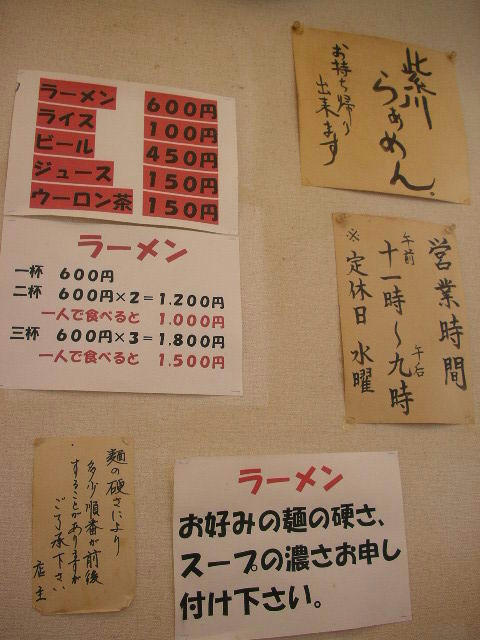 ラーメン 600円
ライス 100円
ビール 450円
ジュース 150円
ウーロン茶 150円
ラーメン
一杯 600円
二杯 600円×2=1,200円
一人で食べると 1,000円
三杯 600円×3=1,800円
一人で食べると 1,500円
紫川
らぁめん。
お持ち帰り
出来ます
営業時間
午前 午后
十一時〜九時
※定休日 水曜
麺の硬さにより
多少順番が前後
することがありますが
ご了承下さい
店主
ラーメン
お好みの麺の硬さ、
スープの濃さお申し
付け下さい。